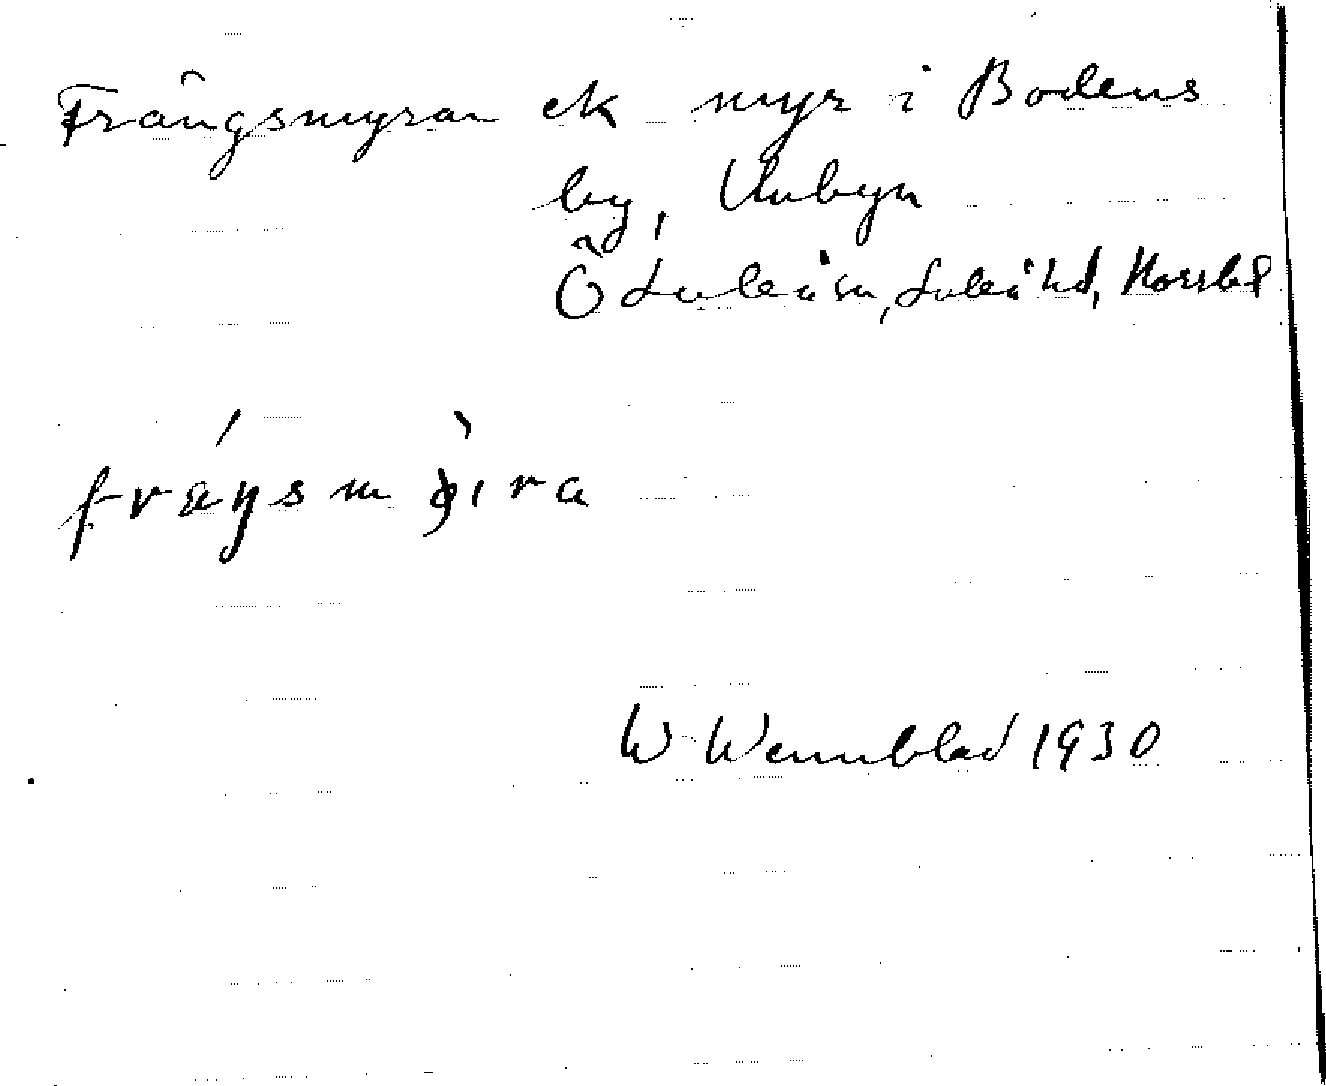 Frängsmyran ek myr i Bodens
by, Unbyn
Ö Luleå sn, Luleå hd, Norrbl
fräŋsmy̌ra
W Wennblad 1930